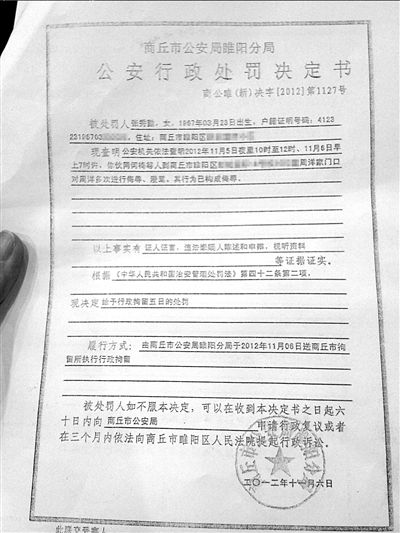 商丘市公安局睢阳分局
公安行政处罚决定书
商公睢(新)决字[2012]第1127号
被处罚人张秀勤,女,1967年03月23日出生,户籍证明号码:4123
23196703 ,住址:商丘市睢阳区
现查明公安机关依法查明2012年11月5日夜里10时至12时、11月6日早
上7时许,你伙同何 等人到商丘市睢阳区 周洋家门口
对周洋多次进行侮辱、谩骂,其行为已构成侮辱。
以上事实有 证人证言,违法嫌疑人陈述和申辩,视听资料
等证据证实。
根据 《中华人民共和国治安管理处罚法》第四十二条第二项,
现决定 给予行政拘留五日的处罚
履行方式: 由商丘市公安局睢阳分局于2012年11月06日送商丘市拘
留所执行行政拘留
被处罚人如不服本决定,可以在收到本决定书之日起六
十日内向 商丘市公安局 申请行政复议或者
在三个月内依法向商丘市睢阳区人民法院提起行政诉讼。
二〇一二年十一月六日